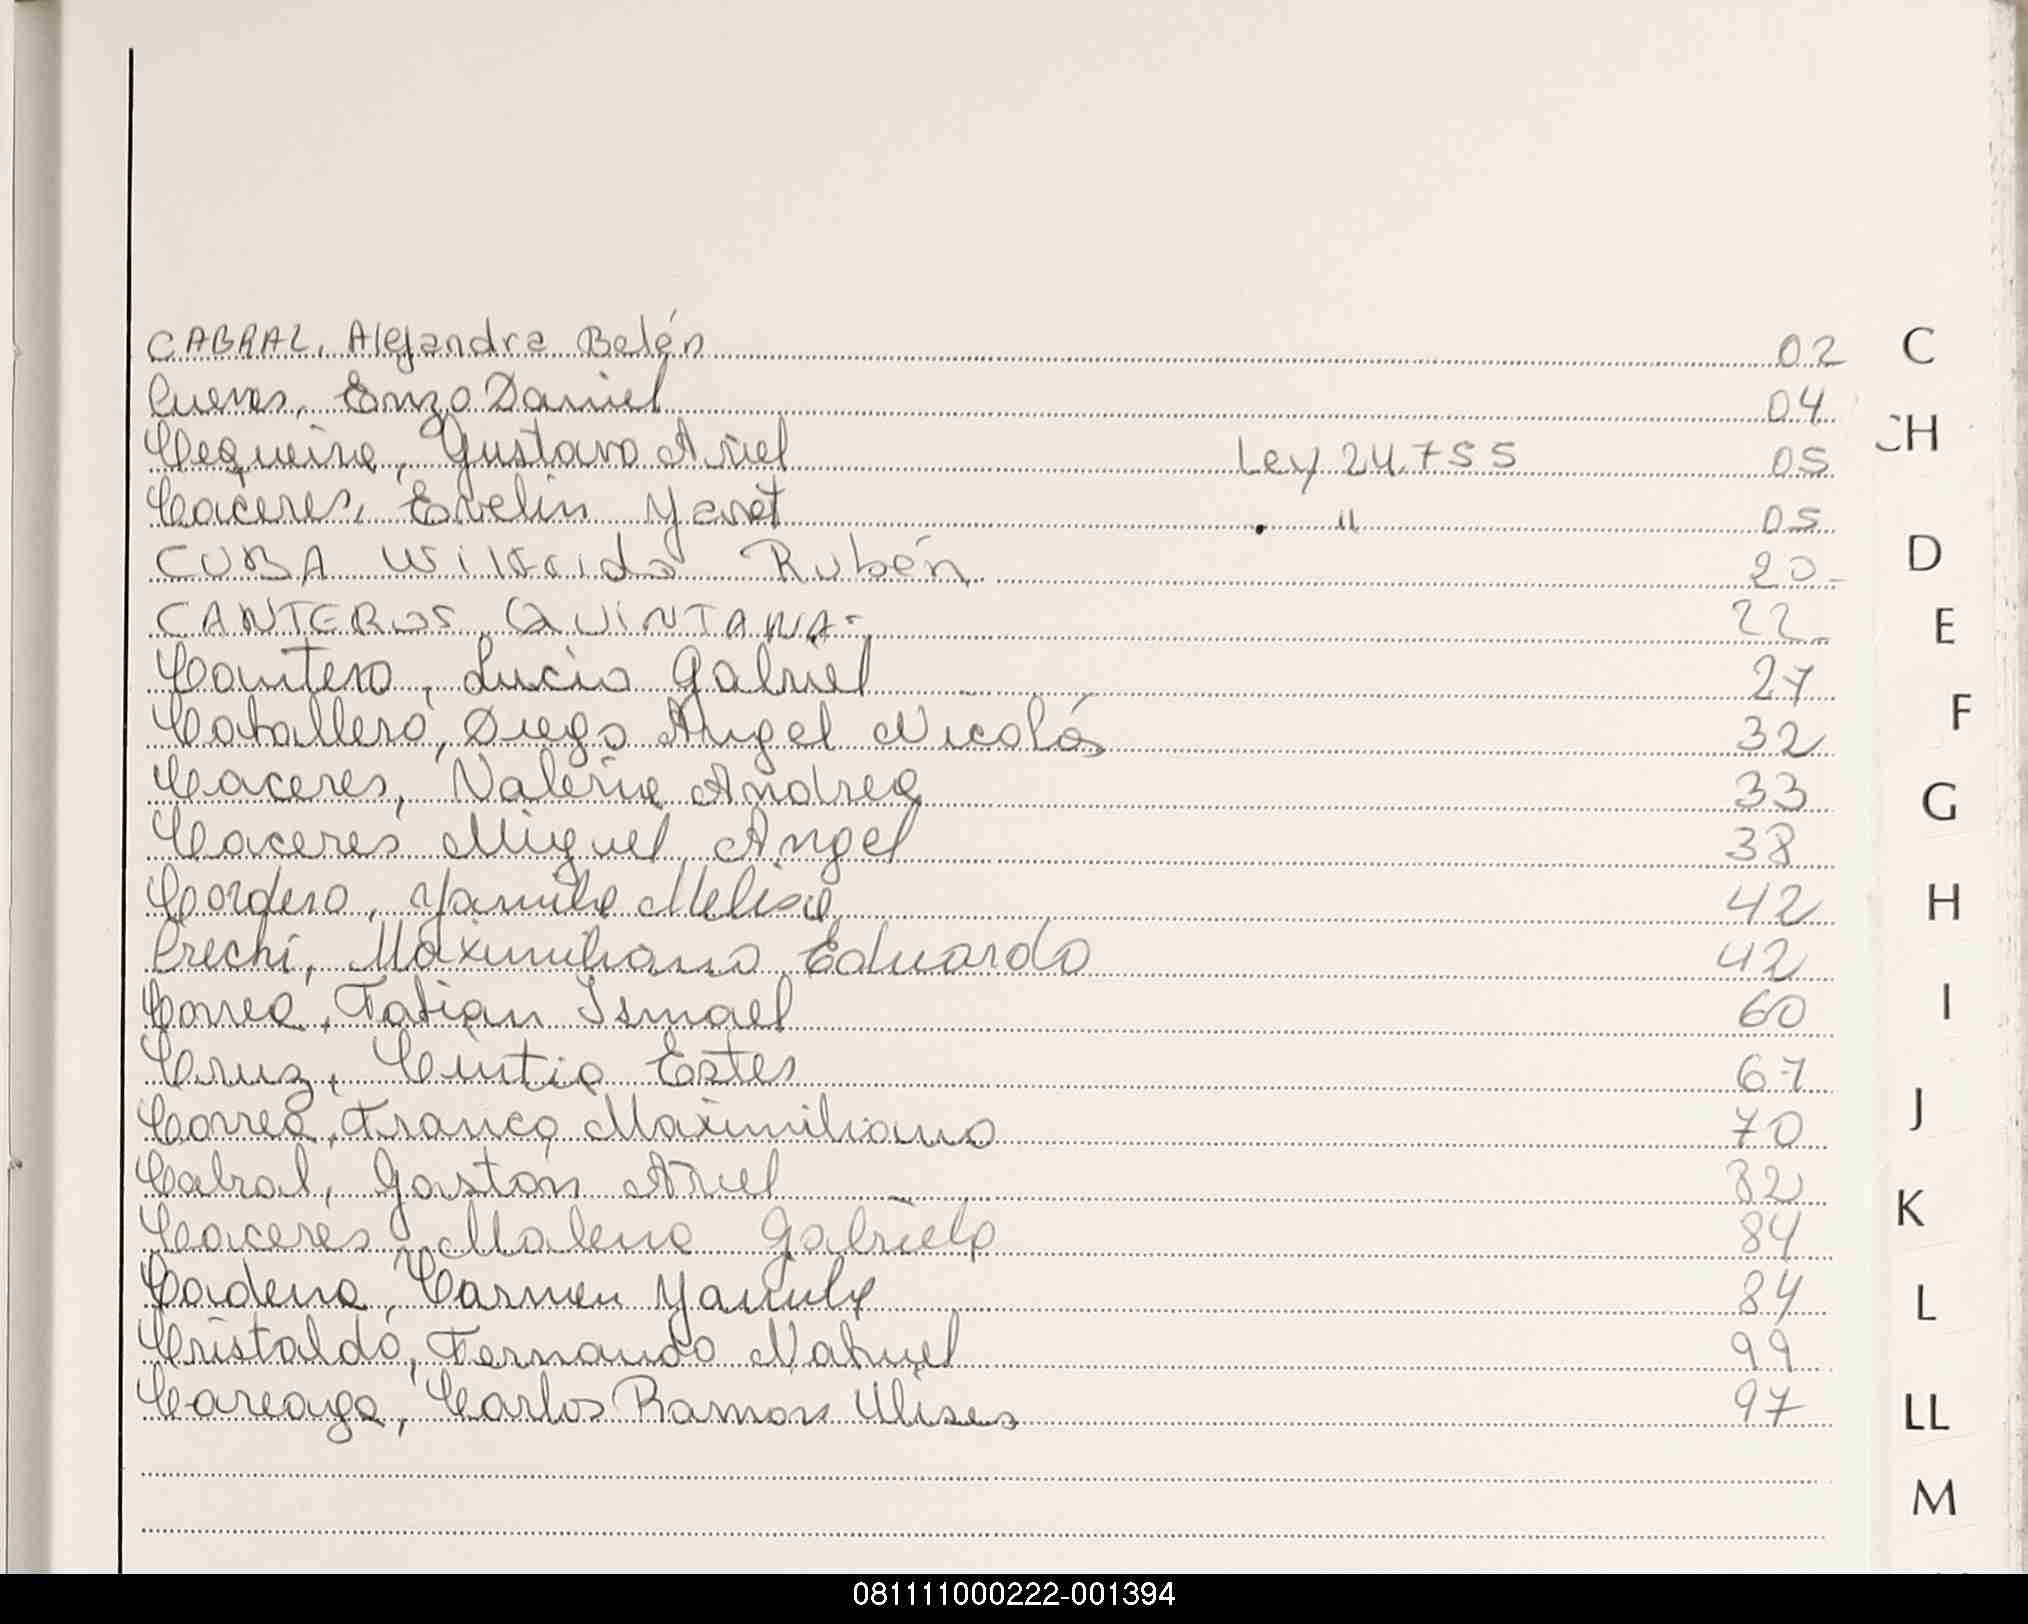 CABRAL, Alejandra Belén 02
Cuevas, Enzo Daniel 04
Cequeira, Gustavo Ariel Ley 24.755 05
Caceres, Evelin Yanet " 05
CUBA Wilfrido Rubén 20-
CANTEROS QUINTANA- 22-
Cantero, Lucio Gabriel 27
Caballero, Diego Angel Nicolás 32
Caceres, Valeria Andrea 33
Caceres Miguel Angel 38
Cordero, Yamila Melisa 42
Crechi, Maximiliano Eduardo 42
Correa, Fabian Ismael 60
Cruz, Cintia Estes 67
Correa, Franco Maximiliano 70
Cabral, Gastón Ariel 82
Caceres, Malena Gabriela 84
Cadena, Carmen Yamila 84
Cristaldo, Fernando Nahuel 99
Careaga, Carlos Ramon Ulises 97
C
CH
D
E
F
G
H
I
J
K
L
LL
M
081111000222-001394